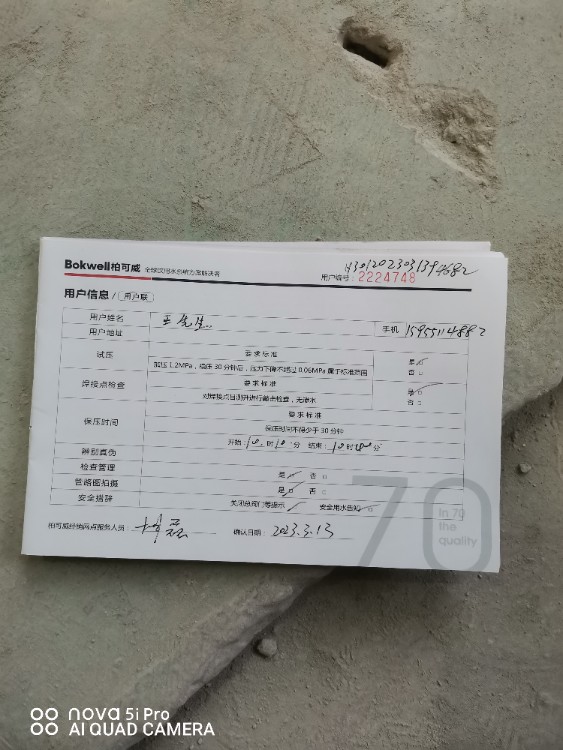 Bokwell柏可威 全球饮用水创新方案解决者
H3012023031394682
用户编号: 2224748
用户信息 / 用户联
用户姓名 王先生
手机 15955114882
用户地址
试压 要求标准 是
加压 1.2MPa，稳压 30 分钟后，压力下降不超过 0.05MPa 属于标准范围 否
焊接点检查 要求标准 是
对焊接点目测并进行敲击检查，无渗水 否
保压时间 要求标准
保压时间不得少于 30 分钟
开始: 时 分 结束: 时 分
辨别真伪
检查管理 是 否
管路图拍摄 是 否
安全措辞 关闭总阀门等提示 安全用水告知
柏可威经销网点服务人员: 确认日期: 2023.3.13
70
In 70
the
quality
nova 5i Pro
AI QUAD CAMERA